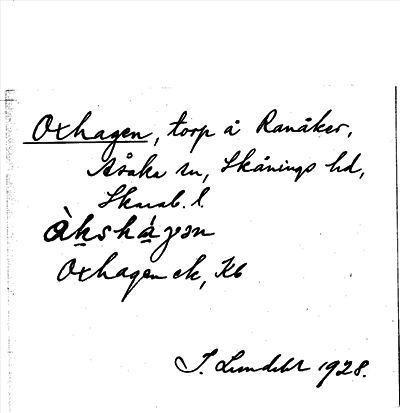 Oxhagen, torp å Ranåker,
Åsaka sn, Skånings hd,
Skarab. l.
àkshágən
Oxhagen ek, Kb
J. Lundahl 1928.